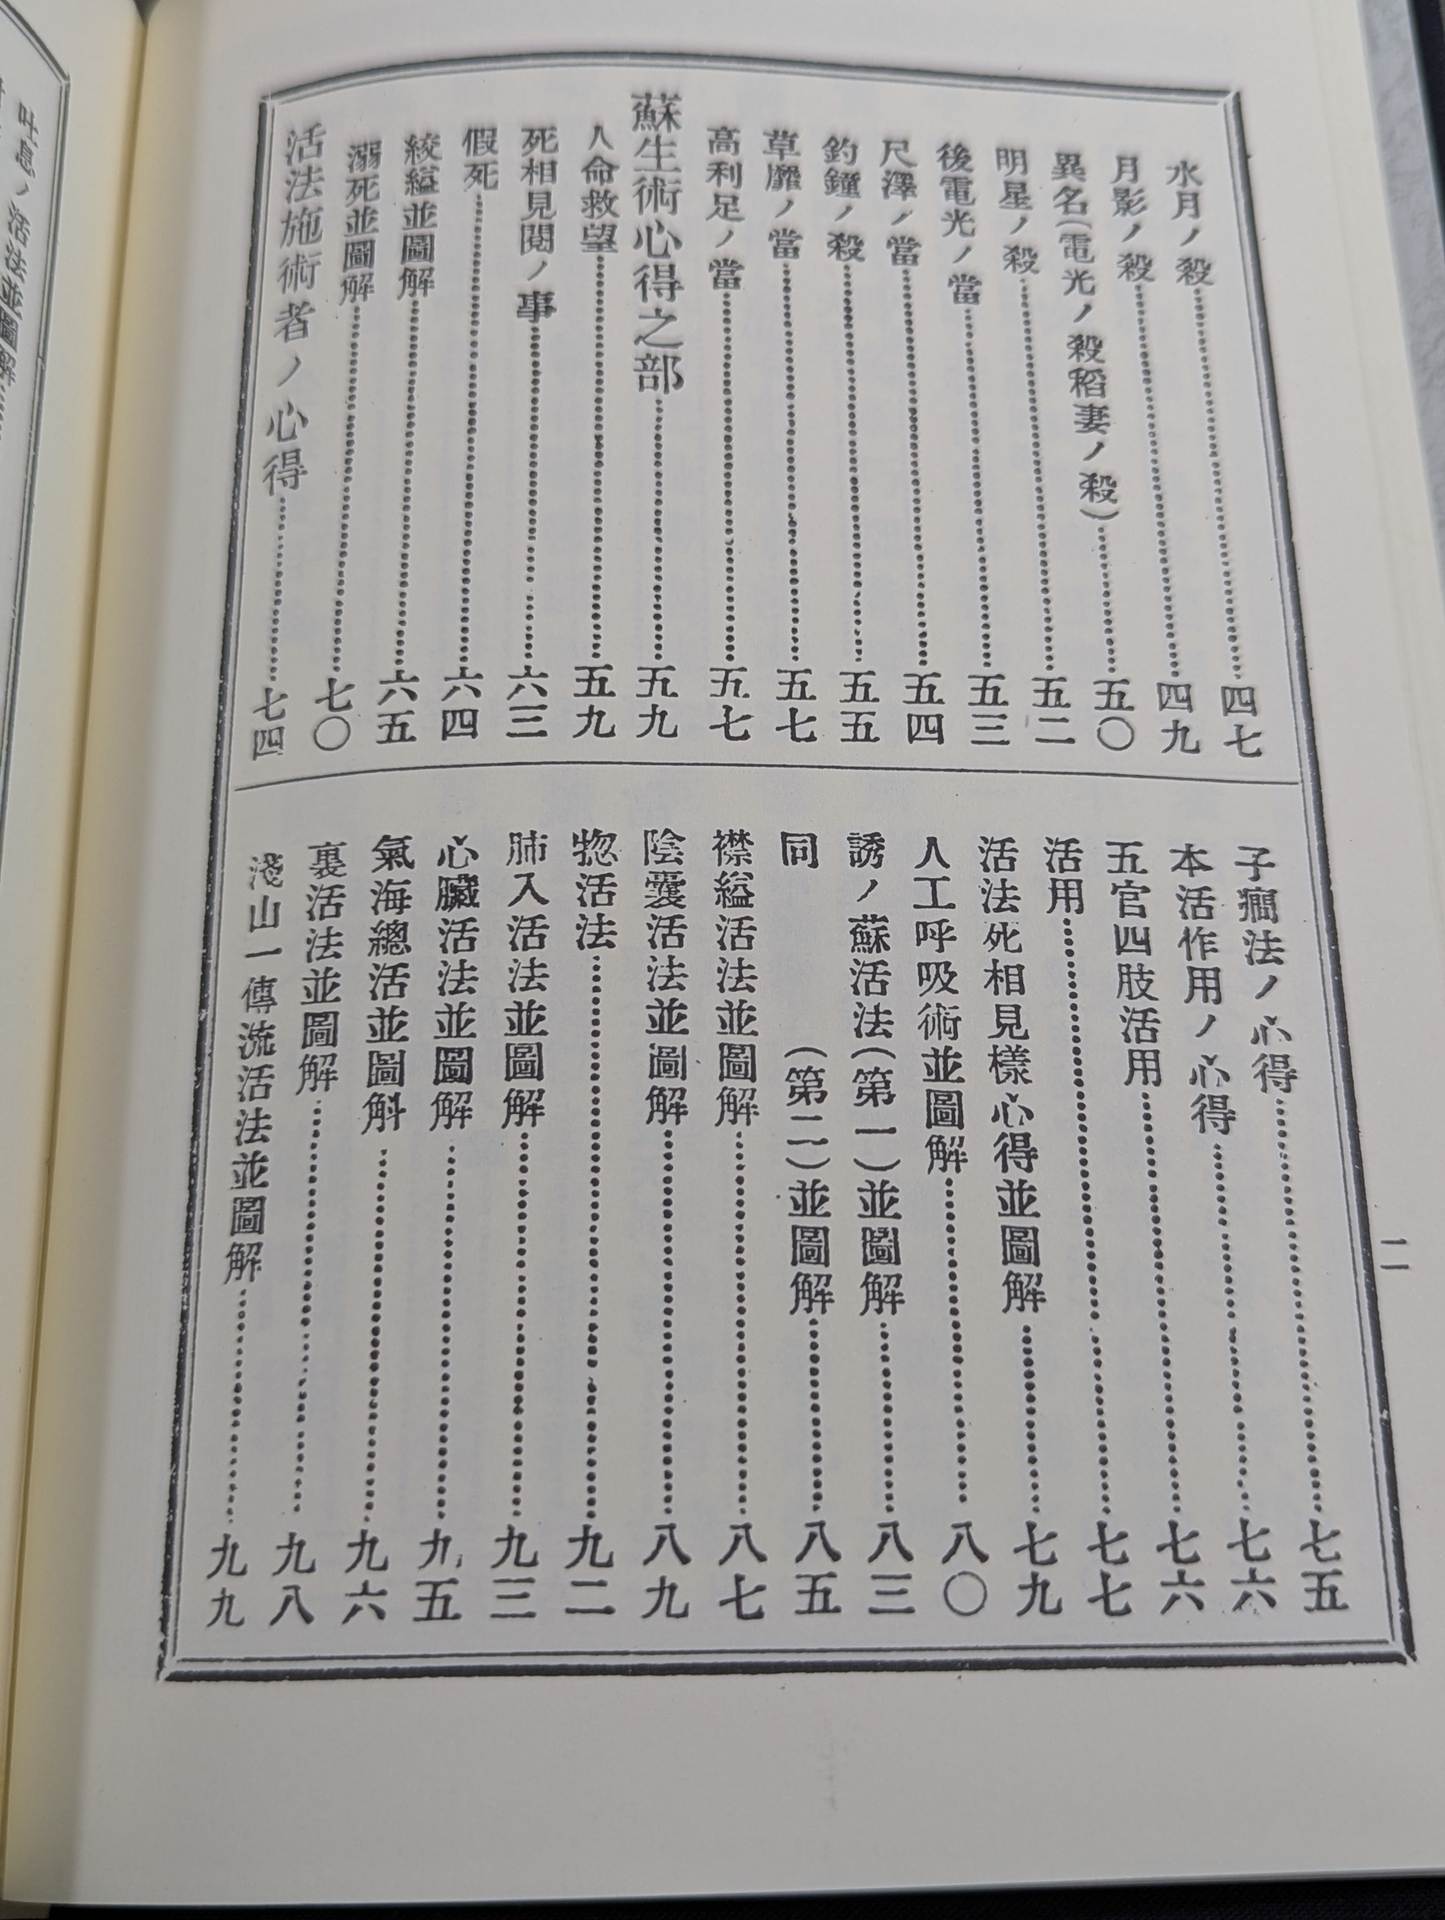 水月ノ殺……四七
月影ノ殺……四九
異名(電光ノ殺稻妻ノ殺)……五〇
明星ノ殺……五二
後電光ノ當……五三
尺澤ノ當……五四
釣鐘ノ殺……五五
草靡ノ當……五七
高利足ノ當……五七
蘇生術心得之部……五九
人命救望……五九
死相見閱ノ事……六三
假死……六四
絞縊並圖解……六五
溺死並圖解……七〇
活法施術者ノ心得……七四
子癇法ノ心得……七五
本活作用ノ心得……七六
五官四肢活用……七六
活用……七七
活法死相見樣心得並圖解……七九
人工呼吸術並圖解……八〇
誘ノ蘇活法(第一)並圖解……八三
同(第二)並圖解……八五
襟縊活法並圖解……八七
陰囊活法並圖解……八九
惣活法……九二
肺入活法並圖解……九三
心臟活法並圖解……九五
氣海總活並圖解……九六
裏活法並圖解……九八
淺山一傳流活法並圖解……九九
二
吐息ノ活法並圖解